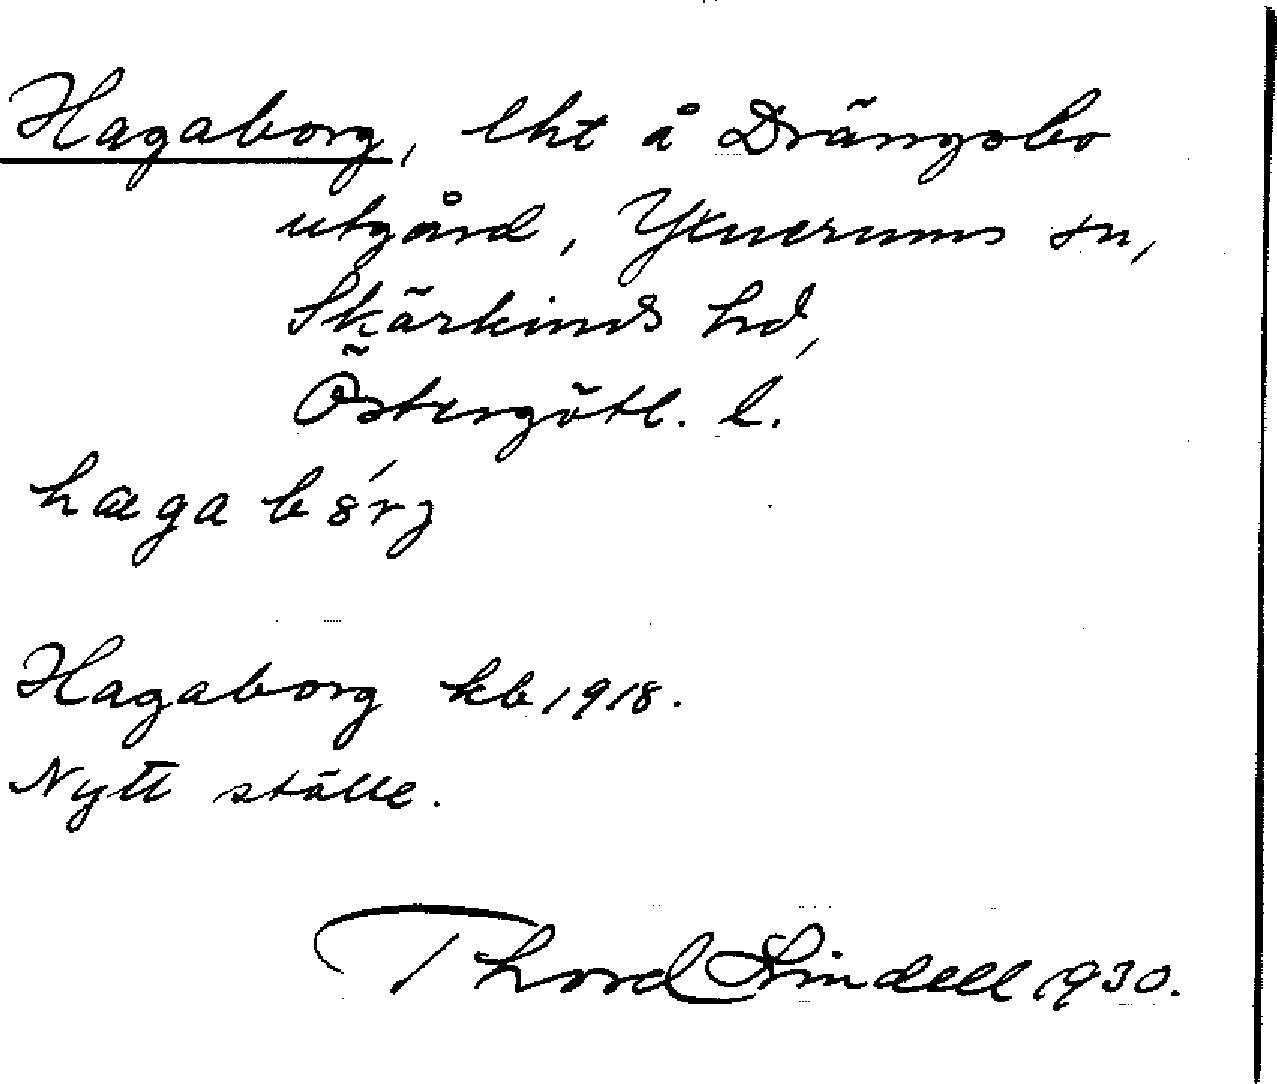 Hagaborg, lht å Drängsbo
utgård, Yxnerums sn,
Skärkinds hd,
Östergötl. l.
Hagaborg kb 1918.
Nytt ställe.
Thord Lindell 1930.